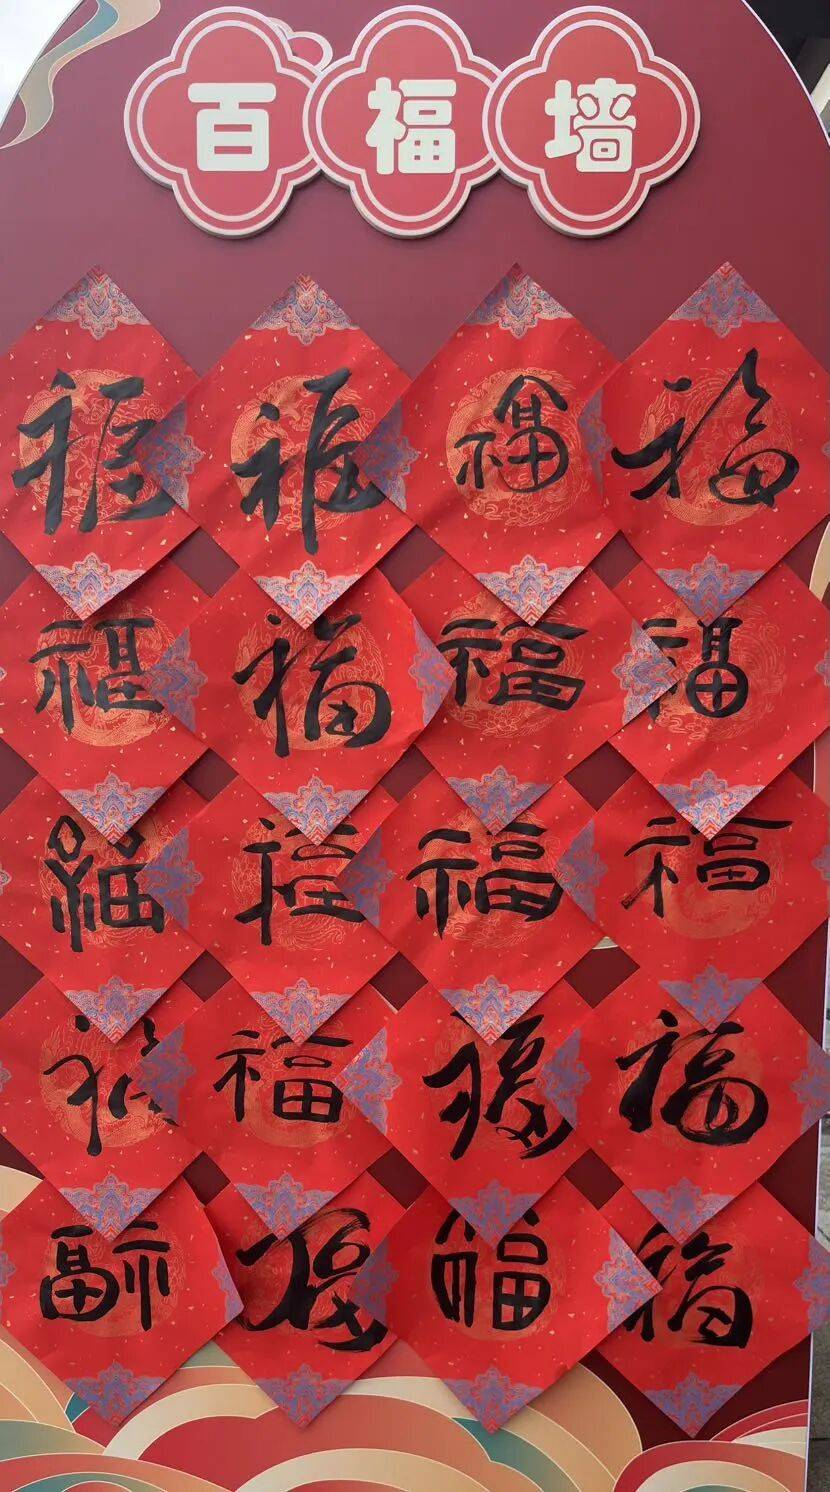 百福墙
福 福 福 福
福 福 福 福
福 福 福 福
福 福 福 福
福 福 福 福